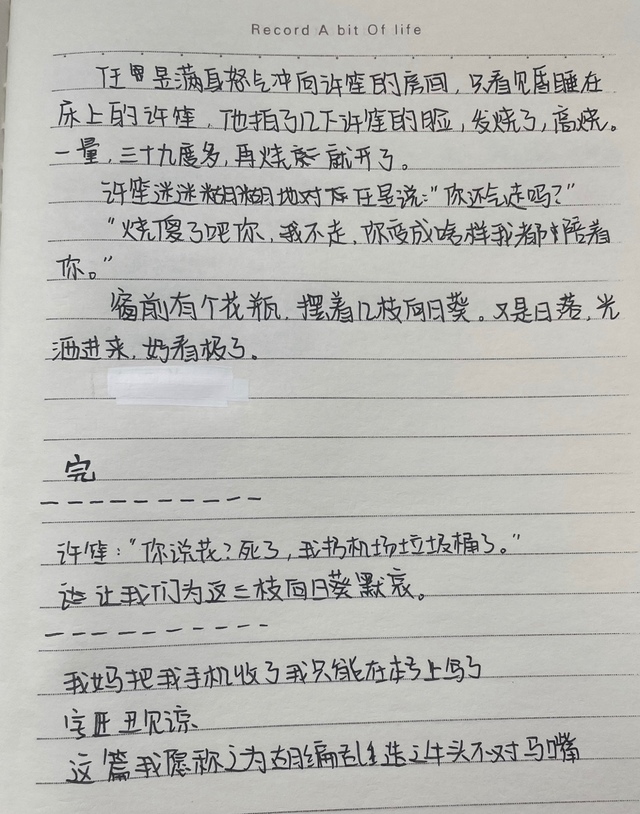 Record A bit Of life
任昱满身怒气冲向许笙的房间，只看见昏睡在
床上的许笙，他拍了几下许笙的脸，发烧了，高烧。
一量，三十九度多，再烧就开了。
许笙迷迷糊糊地对任昱说：“你还气走吗？”
“烧傻了吧你，我不走，你变成啥样我都陪着
你。”
窗前有个花瓶，摆着几枝向日葵。又是日落，光
洒进来，好看极了。
完
许笙：“你说花？死了，我扔机场垃圾桶了。”
让我们为这三枝向日葵默哀。
我妈把我手机收了我只能在本子上写了
字丑见谅
这篇我愿称之为胡编乱造之牛头不对马嘴